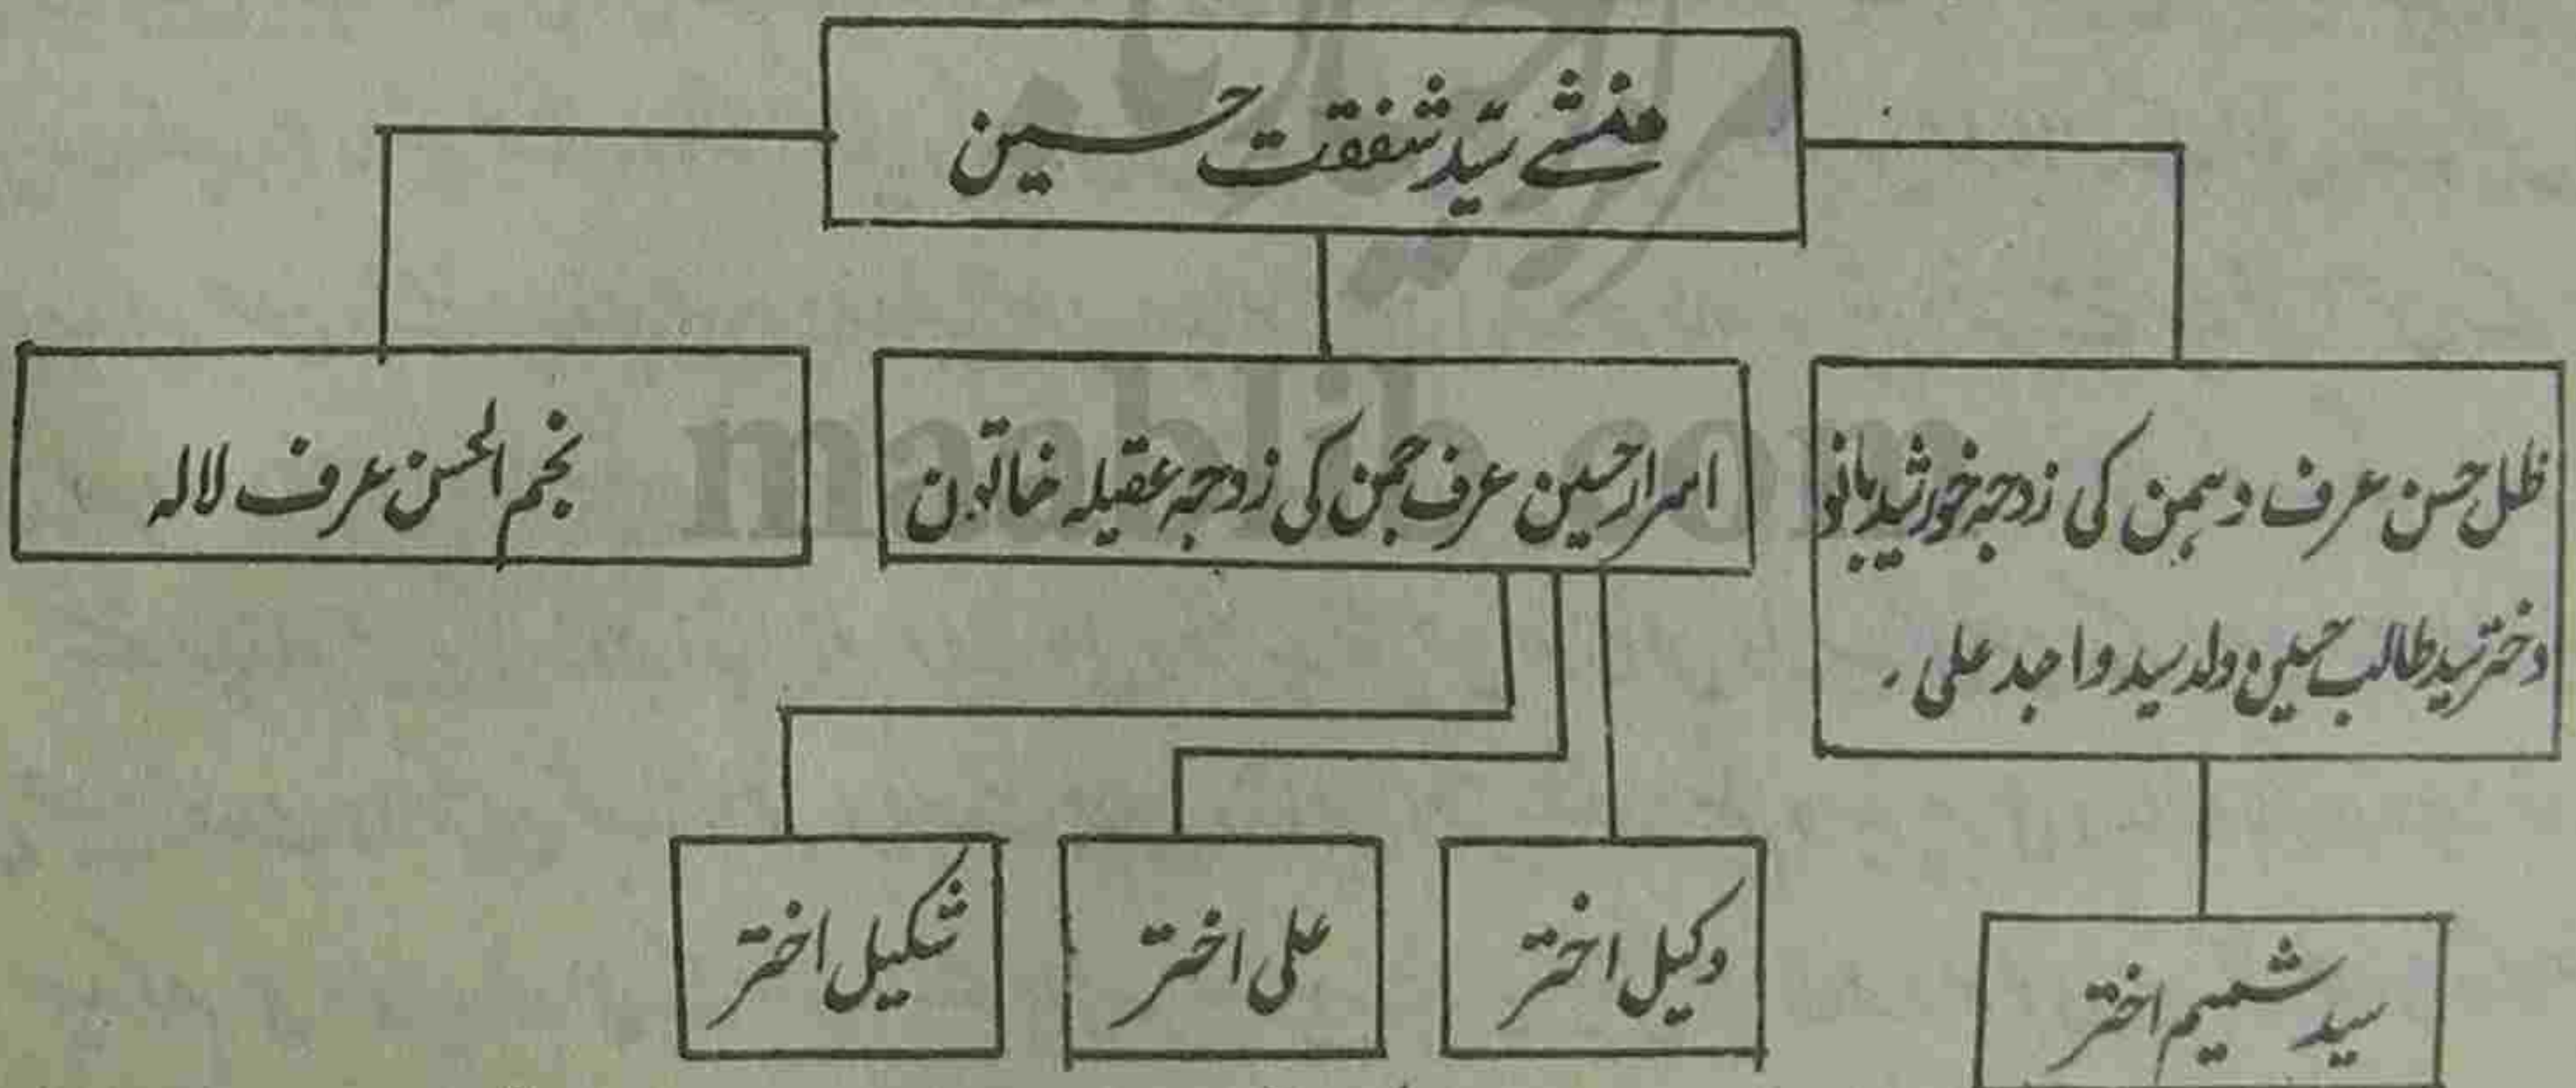 منشی سیّد شفقت حسین
ظل حسن عرف دہمن کی زوجہ خورشید بانو
دختر سید طالب حسین ولد سید واجد علی۔
اسرار حسین عرف جمن کی زوجہ عقیلہ خاتون
نجم الحسن عرف لالہ
سید شمیم اختر
وکیل اختر
علی اختر
شکیل اختر
maablib.com